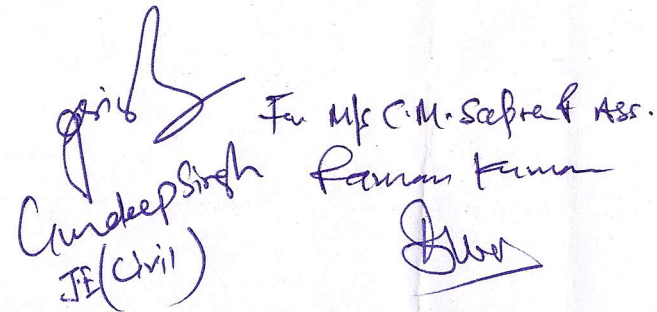 Gurdeep Singh
JE (Civil)
For M/s C.M. Sapra & Ass.
Raman Kumar